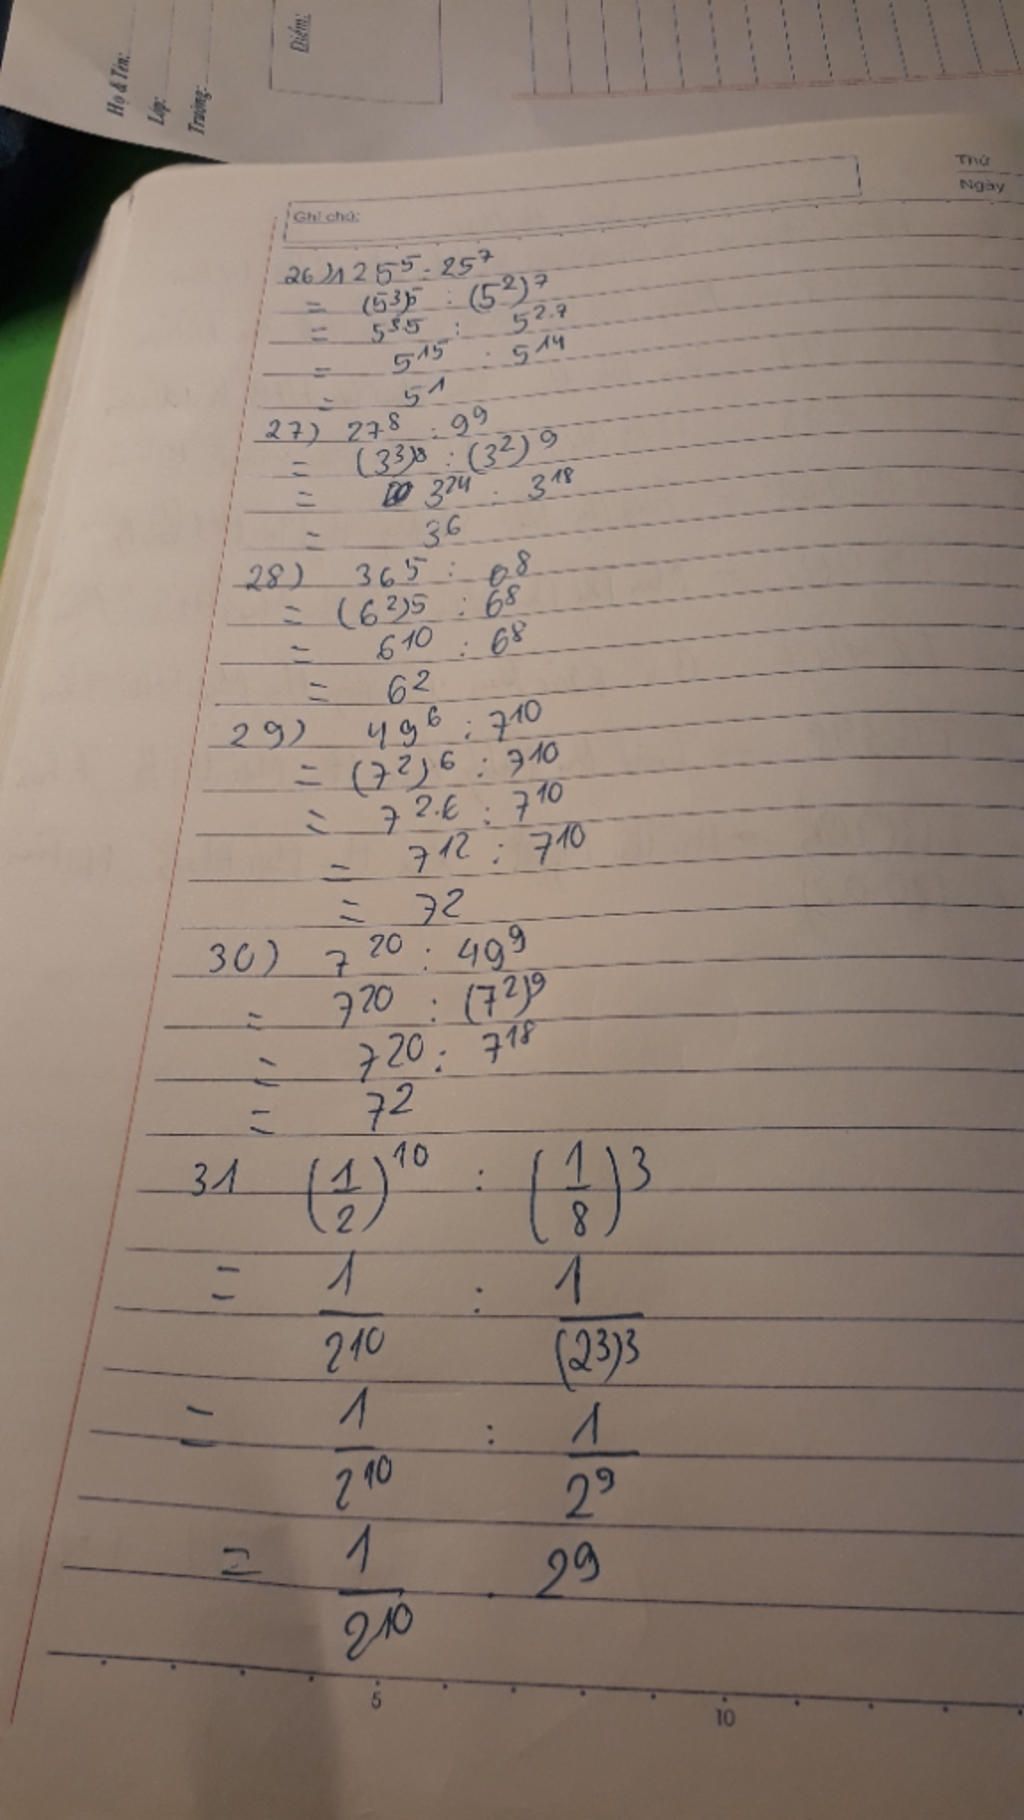 Họ & Tên:
Lớp:
Trường:
Điểm:
Thứ
Ngày
Ghi chú:
26) 125⁵ : 25⁷
= (5³)⁵ : (5²)⁷
= 5³·⁵ : 5²·⁷
= 5¹⁵ : 5¹⁴
= 5¹
27) 27⁸ : 9⁹
= (3³)⁸ : (3²)⁹
= 3²⁴ : 3¹⁸
= 3⁶
28) 36⁵ : 6⁸
= (6²)⁵ : 6⁸
= 6¹⁰ : 6⁸
= 6²
29) 49⁶ : 7¹⁰
= (7²)⁶ : 7¹⁰
= 7²·⁶ : 7¹⁰
= 7¹² : 7¹⁰
= 7²
30) 7²⁰ : 49⁹
= 7²⁰ : (7²)⁹
= 7²⁰ : 7¹⁸
= 7²
31 (1/2)¹⁰ : (1/8)³
= 1/2¹⁰ : 1/(2³)³
= 1/2¹⁰ : 1/2⁹
= 1/2¹⁰ . 2⁹
5 10